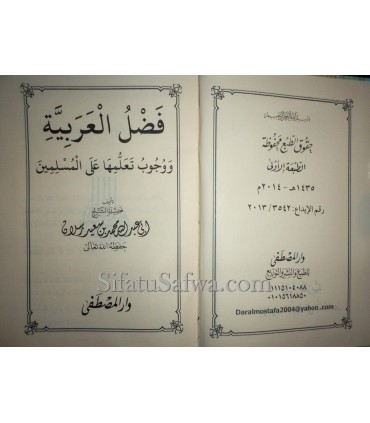 حقوق الطبع محفوظة
الطبعة الأولى
١٤٣٥هـ - ٢٠١٤م
رقم الإيداع: ٢٠١٣/٣٥٤٢
دار المصطفى
للطبع والنشر والتوزيع
٠١١١٥١٠٤٠٨٨
٠١٠١٥٦١٨٨٥٠
Daralmostafa2004@yahoo.com
فَضْلُ الْعَرَبِيَّةِ
وَوُجُوبُ تَعَلُّمِهَا عَلَى الْمُسْلِمِينَ
تأليف
فضيلة الشيخ
أبي عبد الله محمد بن سعيد رسلان
حفظه الله تعالى
دار المصطفى
SifatuSafwa.com